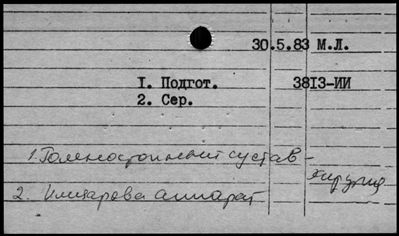 30.5.83 М.Л.
I. Подгот. 38I3-ИИ
2. Сер.
1. Голеностопный сустав –
хирургия
2. Илизарова аппарат